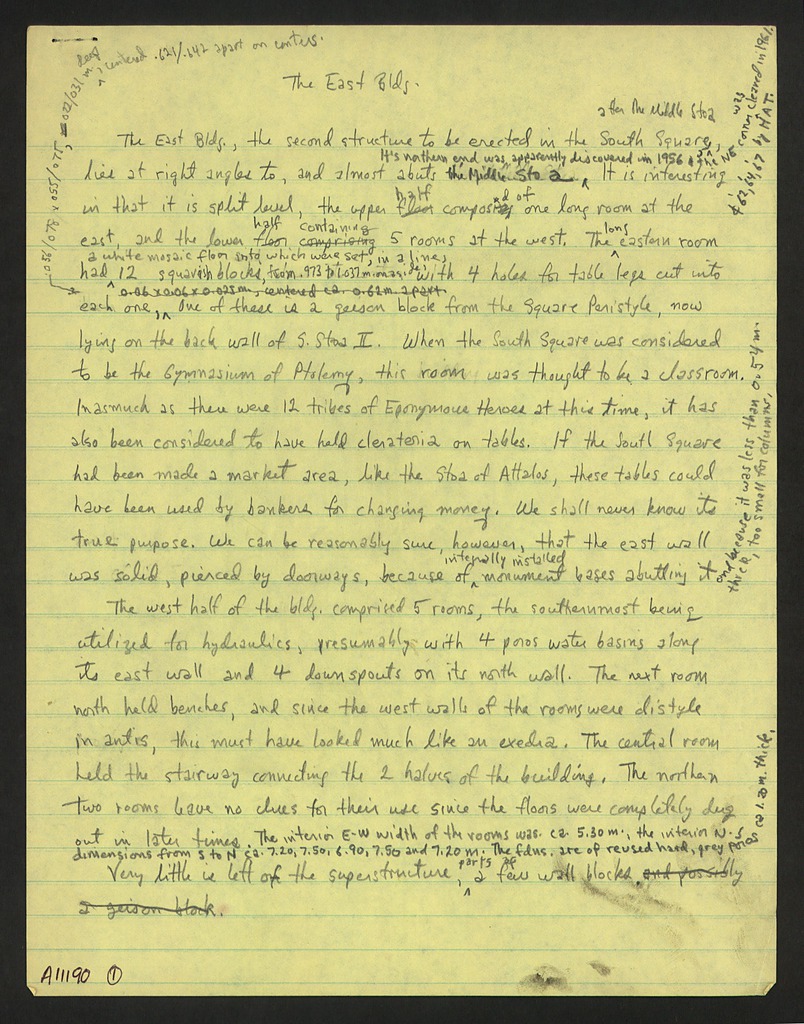 deep, centered .621/.642 apart on centers.
.058/078 x 055/075, 022/031 m.
The East Bldg.
after the Middle Stoa
The East Bldg., the second structure to be erected in the South Square,
It's northern end was apparently discovered in 1956 & the NE
lies at right angles to, and almost abuts the Middle Stoa. It is interesting
half d of
in that it is split level, the upper floor composed of one long room at the
half containing long
east, and the lower floor comprising 5 rooms at the west. The eastern room
a white mosaic floor into which were set, in a line,
had 12 squarish blocks, from .973 to 1.037 m. on a side, with 4 holes for table legs cut into
0.06 x 0.06 x 0.025 m., centered ca. 0.62 m. apart
each one, One of these is a geison block from the Square Peristyle, now
lying on the back wall of S. Stoa II. When the South Square was considered
to be the Gymnasium of Ptolemy, this room was thought to be a classroom.
Inasmuch as there were 12 tribes of Eponymous Heroes at this time, it has
also been considered to have held cleroteria on tables. If the South Square
had been made a market area, like the Stoa of Attalos, these tables could
have been used by bankers for changing money. We shall never know its
true purpose. We can be reasonably sure, however, that the east wall
integrally installed
was solid, pierced by doorways, because of monument bases abutting it
and because it was less than 0.54 m.
thick, too small for columns.
The west half of the bldg. comprised 5 rooms, the southernmost being
utilized for hydraulics, presumably with 4 poros water basins along
its east wall and 4 downspouts on its north wall. The next room
north held benches, and since the west walls of the rooms were distyle
in antis, this must have looked much like an exedra. The central room
held the stairway connecting the 2 halves of the building. The northern
two rooms leave no clues for their use since the floors were completely dug
out in later times. The interior E-W width of the rooms was ca. 5.30 m., the interior N-S
dimensions from S to N ca. 7.20, 7.50, 6.90, 7.50 and 7.20 m. The fdns. are of reused hard, grey poros
ca 1.20 m. thick.
parts of
Very little is left of the superstructure, a few wall blocks and possibly
a geison block.
was
corner cleared in 1961,
& 62, 64, 67 by HAT.
A11190 ①